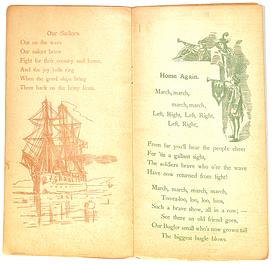 Our Sailors.
Out on the wave
Our sailors brave
Fight for their country and home,
And the joy bells ring
When the good ships bring
Them back on the briny foam.
Home Again.
March, march,
march, march,
Left, Right, Left, Right,
Left, Right,
From far you'll hear the people cheer
For 'tis a gallant sight,
The soldiers brave who o'er the wave
Have now returned from fight!
March, march, march, march,
Too-ra-loo, loo, loo, loo,
Such a brave show, all in a row;—
See there an old friend goes,
Our Bugler small who's now grown tall
The biggest bugle blows.